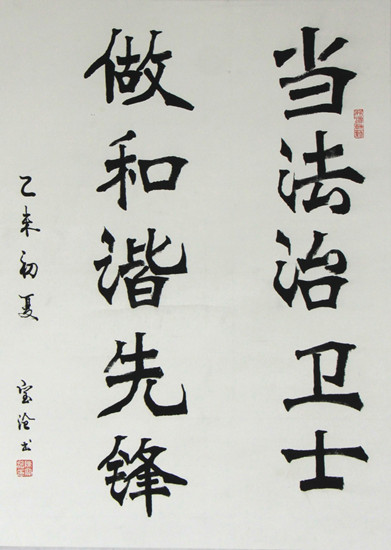 当法治卫士
做和谐先锋
乙未初夏 宝淦书